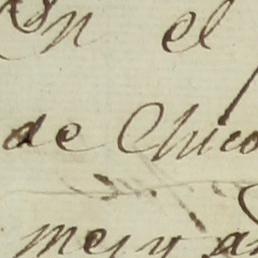 En el
de Chico
mes y añ